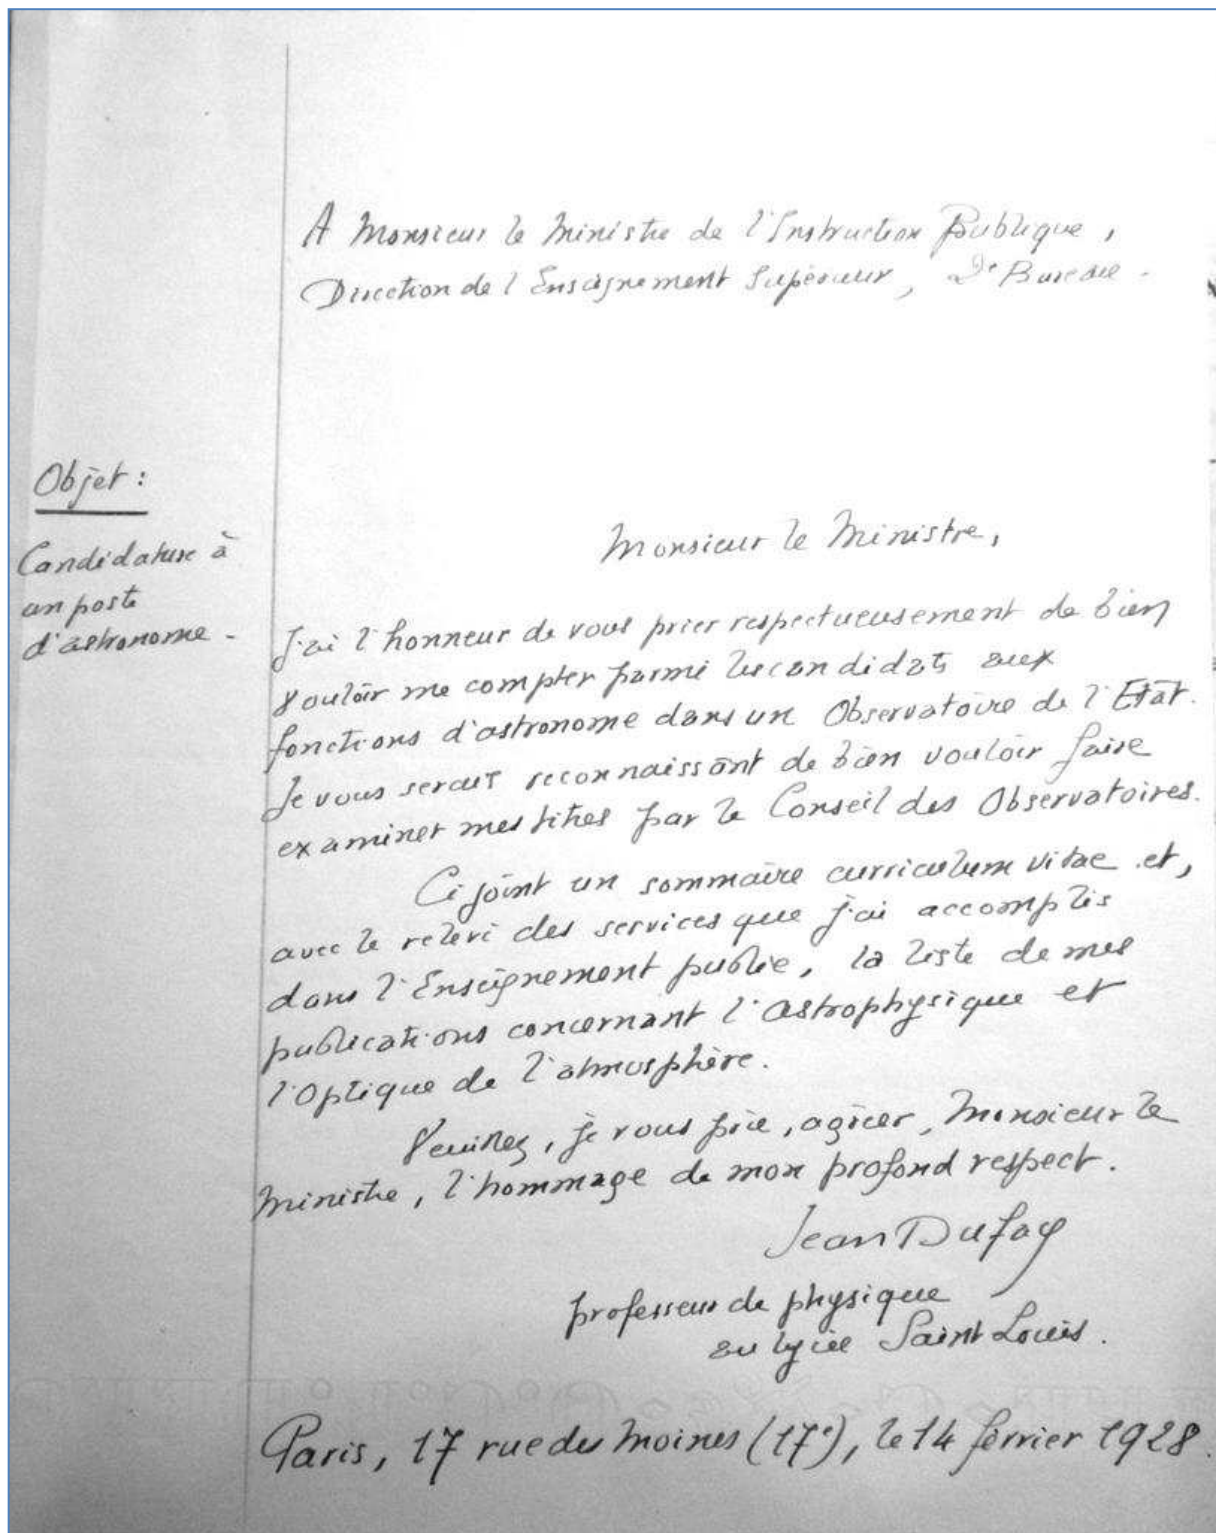 A Monsieur le Ministre de l'Instruction Publique,
Direction de l'Enseignement Supérieur, 2e Bureau.
Objet :
Candidature à
un poste
d'astronome -
Monsieur le Ministre,
J'ai l'honneur de vous prier respectueusement de bien
vouloir me compter parmi les candidats aux
fonctions d'astronome dans un Observatoire de l'Etat.
Je vous serais reconnaissant de bien vouloir faire
examiner mes titres par le Conseil des Observatoires.
Ci joint un sommaire curriculum vitae et,
avec le relevé des services que j'ai accomplis
dans l'Enseignement public, la liste de mes
publications concernant l'astrophysique et
l'Optique de l'atmosphère.
Veuillez, je vous prie, agréer, Monsieur le
Ministre, l'hommage de mon profond respect.
Jean Dufay
professeur de physique
au lycée Saint Louis.
Paris, 17 rue des Moines (17e), le 14 février 1928.